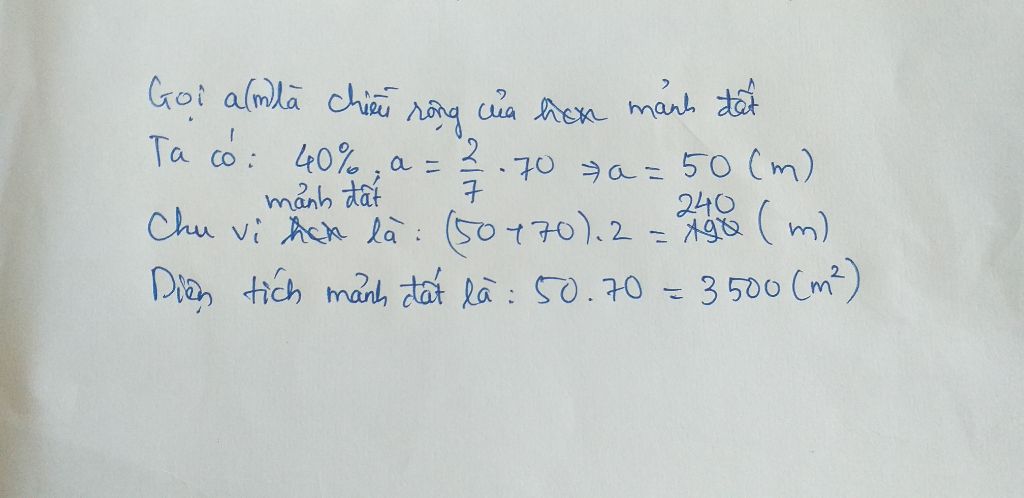 Gọi a(m) là chiều rộng của hcn mảnh đất
Ta có: 40% . a = 2/7 . 70 => a = 50 (m)
mảnh đất 240
Chu vi hcn là: (50+70).2 = 190 (m)
Diện tích mảnh đất là: 50.70 = 3500 (m²)